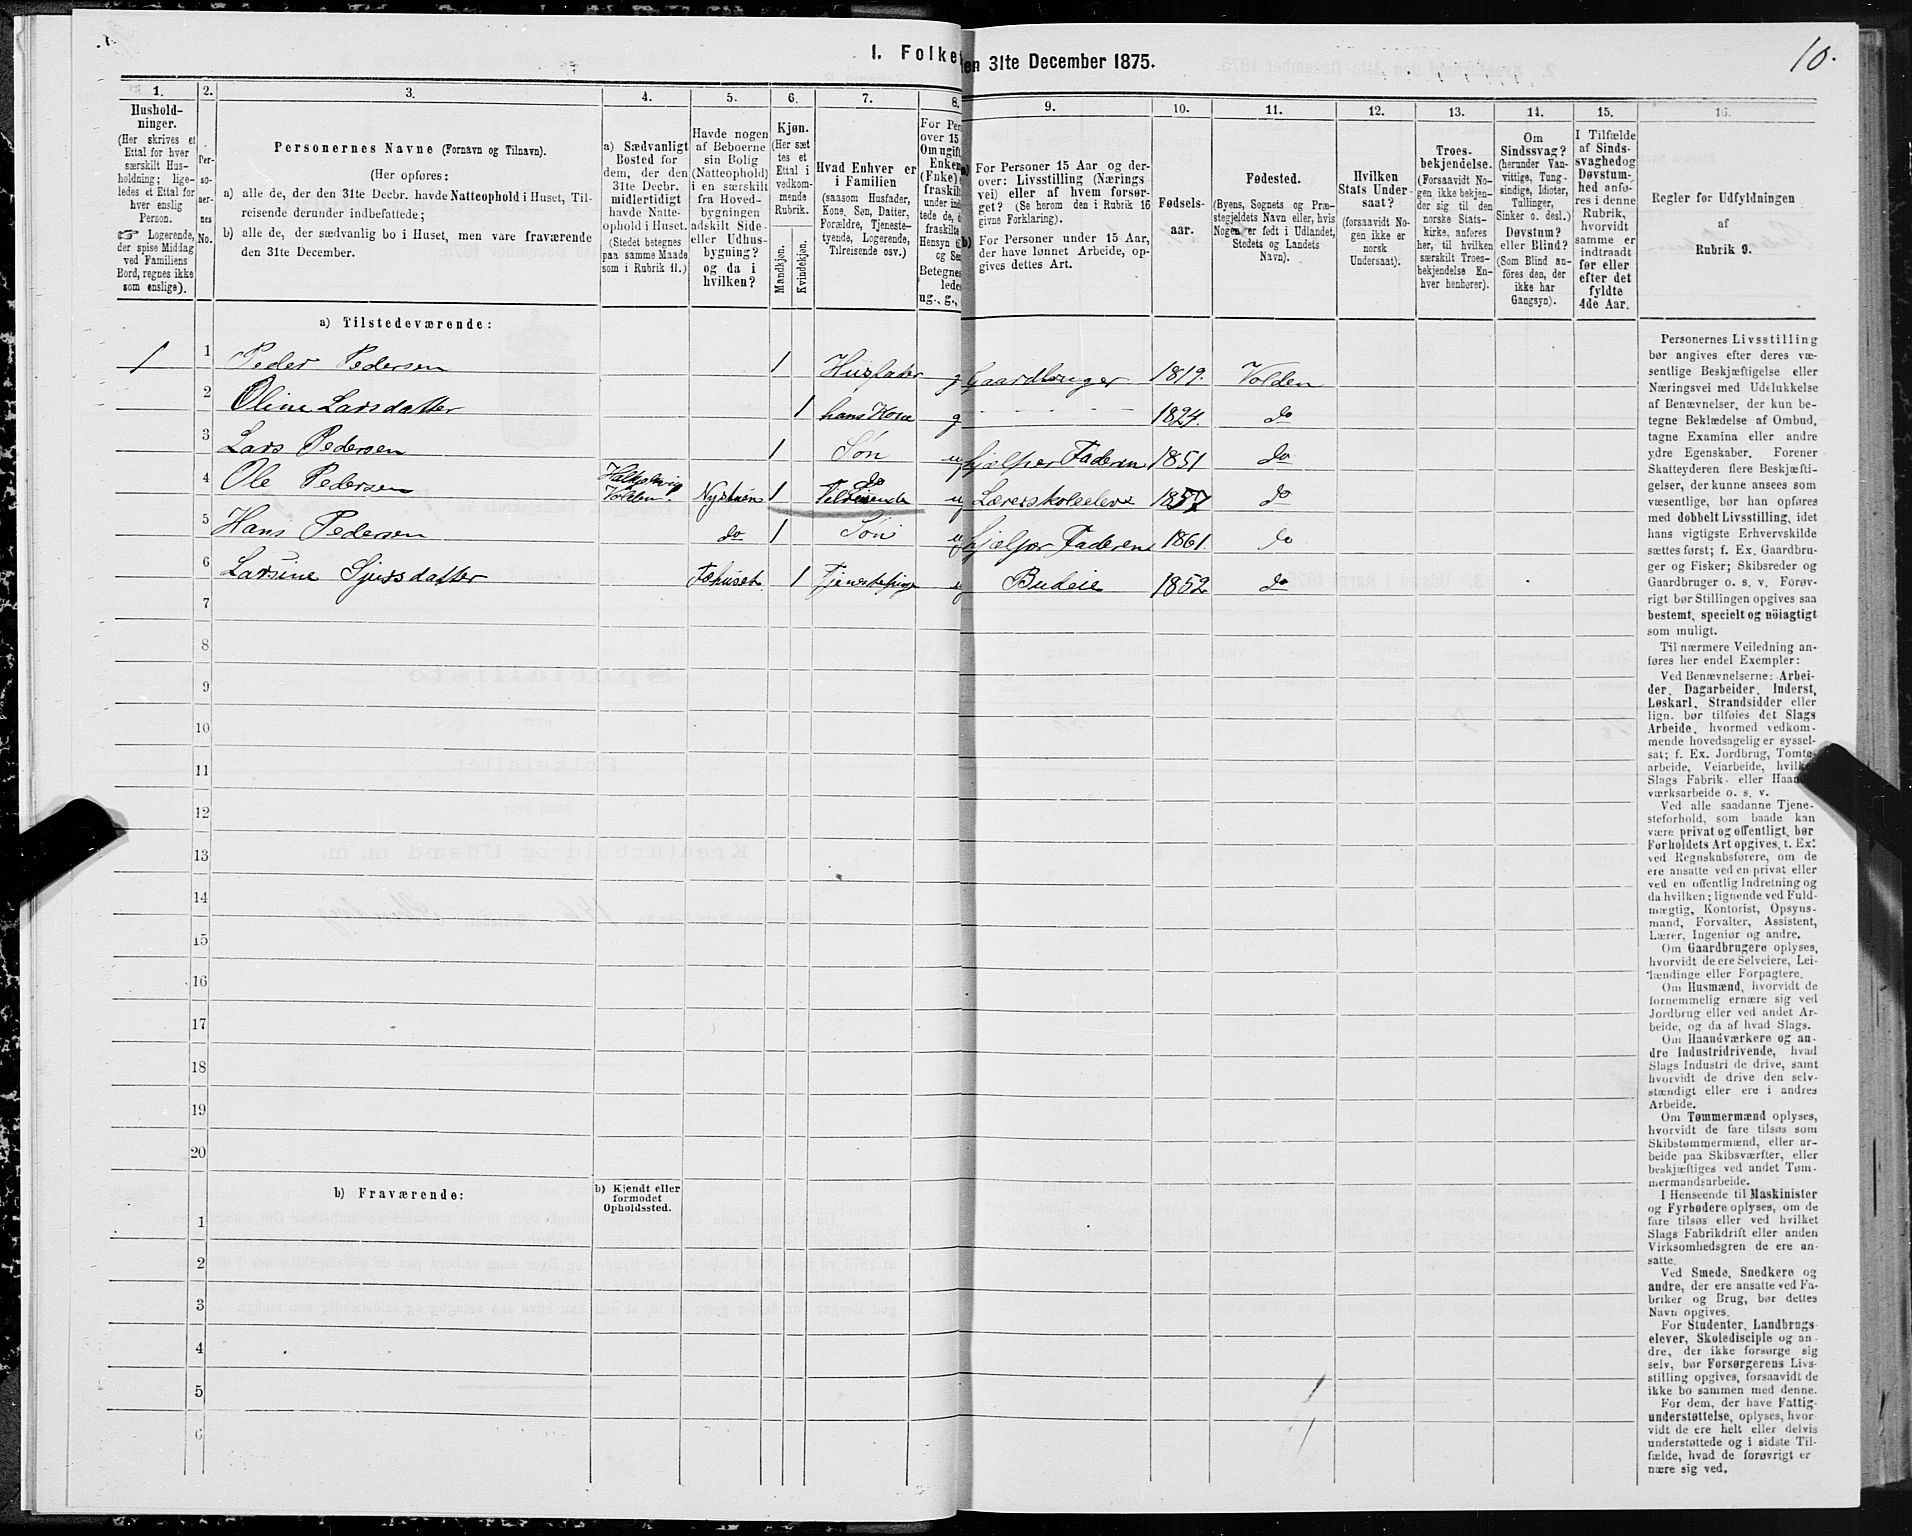 I. Folket
en 31te December 1875.
10.
1.
2.
3.
4.
5.
6.
7.
8.
9.
10.
11.
12.
13.
14.
15.
16.
Hushold-
ninger.
(Her skrives et
Ettal for hver
særskilt Hus-
holdning; lige-
ledes et Ettal for
hver enslig
Person.
☞ Logerende,
der spise Middag
ved Familiens
Bord, regnes ikke
som enslige).
Per-
so-
ner-
nes
No.
Personernes Navne (Fornavn og Tilnavn).
(Her opføres:
a) alle de, der den 31te Decbr. havde Natteophold i Huset, Til-
reisende derunder indbefattede;
b) alle de, der sædvanlig bo i Huset, men vare fraværende
den 31te December.
a) Sædvanligt
Bosted for
dem, der den
31te Decbr.
midlertidigt
havde Natte-
ophold i Huset.
(Stedet betegnes
paa samme Maade
som i Rubrik 11.)
Havde nogen
af Beboerne
sin Bolig
(Natteophold)
i en særskilt
fra Hoved-
bygningen
adskilt Side-
eller Udhus-
bygning?
og da i
hvilken?
Kjøn.
(Her sæt
tes et
Ettal i
vedkom-
mende
Rubrik.
Mandkjøn.
Kvindekjøn.
Hvad Enhver er
i Familien
(saasom Husfader,
Kone, Søn, Datter,
Forældre, Tjeneste-
tyende, Logerende,
Tilreisende osv.)
For Per
over 15
Om ugift
Enken
(Fnke)
fraskilt
under ind
tede de, i
fraskilte
Hensyn ti
og Se
Betegnes
lede
ug., g.,
a) For Personer 15 Aar og der-
over: Livsstilling (Nærings
vei) eller af hvem forsør-
get? (Se herom den i Rubrik 16
givne Forklaring).
b) For Personer under 15 Aar,
der have lønnet Arbeide, op-
gives dettes Art.
Fødsels-
aar.
Fødested.
(Byens, Sognets og Præ-
stegjeldets Navn eller, hvis
Nogen er født i Udlandet,
Stedets og Landets
Navn).
Hvilken
Stats Under-
saat?
(forsaavidt No-
gen ikke er
norsk
Undersaat).
Troes-
bekjendelse.
(Forsaavidt No-
gen ikke bekjen-
der sig til den
norske Stats-
kirke, anføres
her, til hvilken
særskilt Troes-
bekjendelse En-
hver henhører).
Om
Sindssvag?
(herunder Van-
vittige, Tung-
sindige, Idioter,
Tullinger,
Sinker o. desl.)
Døvstum?
eller Blind?
(Som Blind an-
føres den, der
ikke har
Gangsyn).
I Tilfælde
af Sinds-
svaghedog
Døvstum-
hed anfø-
res i denne
Rubrik,
hvorvidt
samme er
indtraadt
før eller
efter det
fyldte
4de Aar.
Regler for Udfyldningen
af
Rubrik 9.
a) Tilstedeværende:
1 1 Peder Pedersen 1 Husfader g Gaardbruger 1819. Volden
2 Oline Larsdatter 1 hans Kone g - - - - 1824. do
3 Lars Pedersen 1 Søn u hjælper Faderen 1851 do
4 Ole Pedersen Volden. Nystuen 1 Tilreisende do u Lærerskoleelev 1857 do
5 Hans Pedersen do 1 Søn u hjælper Faderen 1861. do
6 Larsine Sjursdatter Fæhuset 1 Tjenestepige u Budeie 1852 do
7
8
9
10
11
12
13
14
15
16
17
18
19
20
b) Fraværende:
b) Kjendt eller
formodet
Opholdssted.
1
2
3
4
5
6
Personernes Livsstilling
bør angives efter deres væ-
sentlige Beskjæftigelse eller
Næringsvei med Udelukkelse
af Benævnelser, der kun be-
tegne Beklædelse af Ombud,
tagne Examina eller andre
ydre Egenskaber. Forener
Skatteyderen flere Beskjæfti-
gelser, der kunne ansees som
væsentlige, bør han opføres
med dobbelt Livsstilling, idet
hans vigtigste Erhvervskilde
sættes først; f. Ex. Gaardbru-
ger og Fisker; Skibsreder og
Gaardbruger o. s. v. Forøv-
rigt bør Stillingen opgives saa
bestemt, specielt og nöiagtigt
som muligt.
Til nærmere Veiledning an-
føres her endel Exempler:
Ved Benævnelserne: Arbei-
der, Dagarbeider, Inderst,
Løskarl, Strandsidder eller
lign. bør tilføies det Slags
Arbeide, hvormed vedkom-
mende hovedsagelig er syssel-
sat; f. Ex. Jordbrug, Tomte-
arbeide, Veiarbeide, hvilket
Slags Fabrik- eller Haand-
værksarbeide o. s. v.
Ved alle saadanne Tjene-
steforhold, som baade kan
være privat og offentligt, bør
Forholdets Art opgives, t. Ex.
ved Regnskabsførere, om de
ere ansatte ved en privat eller
ved en offentlig Indretning og
da hvilken; lignende ved Fuld-
mægtig, Kontorist, Opsyns-
mand, Forvalter, Assistent,
Lærer, Ingeniør og andre.
Om Gaardbrugere oplyses,
hvorvidt de ere Selveiere, Lei-
lændinge eller Forpagtere.
Om Husmænd, hvorvidt de
fornemmelig ernære sig ved
Jordbrug eller ved andet Ar-
beide, og da af hvad Slags.
Om Haandværkere og an-
dre Industridrivende, hvad
Slags Industri de drive, samt
hvorvidt de drive den selv-
stændigt eller ere i andres
Arbeide.
Om Tømmermænd oplyses,
hvorvidt de fare tilsøs som
Skibstømmermænd, eller ar-
beide paa Skibsværfter, eller
beskjæftiges ved andet Tøm-
mermandsarbeide.
I Henseende til Maskinister
og Fyrbødere oplyses, om de
fare tilsøs eller ved hvilket
Slags Fabrikdrift eller anden
Virksomhedsgren de ere an-
satte.
Ved Smede, Snedkere og
andre, der ere ansatte ved Fa-
briker og Brug, bør dettes
Navn opgives.
For Studenter, Landbrugs-
elever, Skoledisciple og an-
dre, der ikke forsørge sig
selv, bør Forsørgerens Livs-
stilling opgives, forsaavidt de
ikke bo sammen med denne.
For dem, der have Fattig-
understøttelse, oplyses, hvor-
vidt de ere helt eller delvis
understøttede og i sidste Til-
fælde, hvad de forøvrigt er-
nære sig ved.